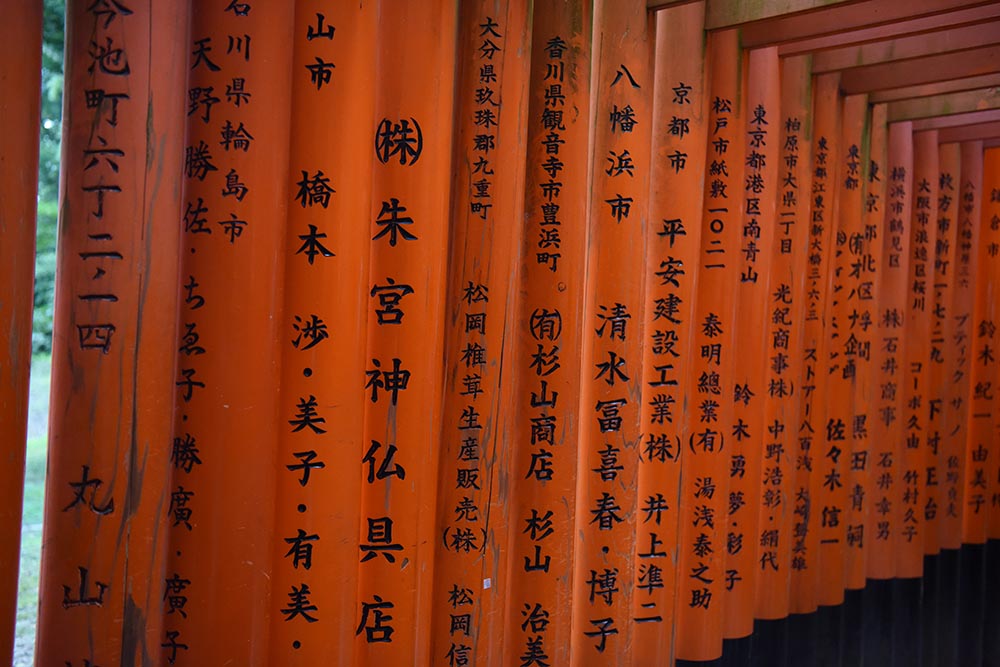 今池町六丁二,一四 丸山
天野勝佐・ちゑ子・勝廣・廣子
石川県輪島市
山市 橋本 渉・美子・有美・
㈱朱宮神仏具店
大分県玖珠郡九重町 松岡椎茸生産販売(株) 松岡信
香川県観音寺市豊浜町 ㈲杉山商店 杉山 治美
八幡浜市 清水冨喜春・博子
京都市 平安建設工業(株) 井上準二
松戸市紙敷一〇二 泰明總業(有) 湯浅泰之助
東京都港区南青山 鈴木勇夢・彩子
柏原市大県一丁目 光紀商事株) 中野浩彰・絹代
東京都江東区新大橋三,六,三 ストアー八百浅
東京都
佐々木信一
東京都北区浮間 黒田青祠
横浜市鶴見区 株)石井商事 石井幸男
大阪市浪速区桜川 コーポ久由 竹村久子
枚方市新町一,七二九 下村正台
八幡市八幡神原三六 ブティックサノ 佐野貞夫
鈴木紀一 由美子